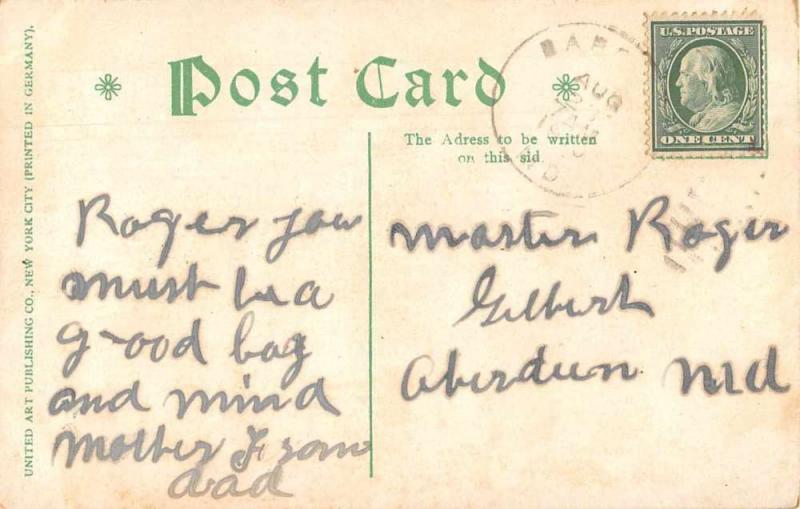 UNITED ART PUBLISHING CO., NEW YORK CITY (PRINTED IN GERMANY).
Post Card
The Adress to be written
on this sid.
AUG
U.S.POSTAGE
ONE CENT
Roger you
must be a
good boy
and mind
Mother From
dad
Master Roger
Gilbert
Aberdeen Md